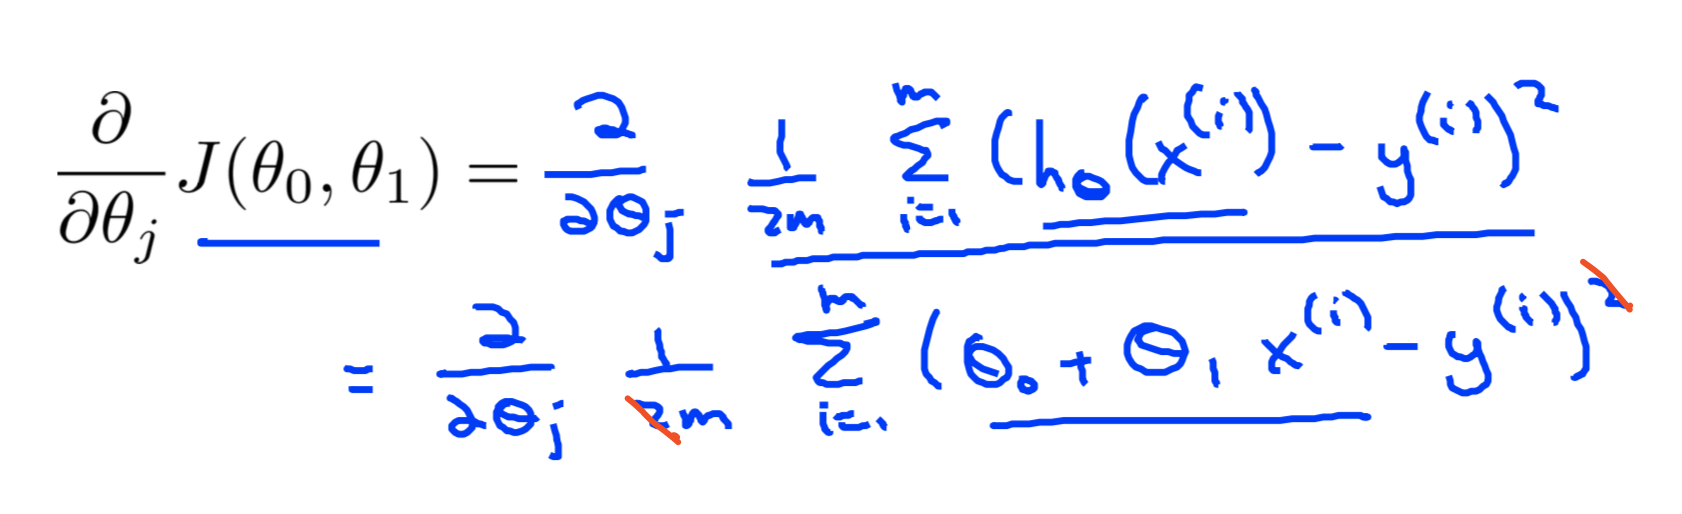 ∂/∂θ_j J(θ_0, θ_1) = ∂/∂θ_j 1/2m ∑_{i=1}^{m} (h_θ(x^{(i)}) - y^{(i)})^2
= ∂/∂θ_j 1/2m ∑_{i=1}^{m} (θ_0 + θ_1 x^{(i)} - y^{(i)})^2